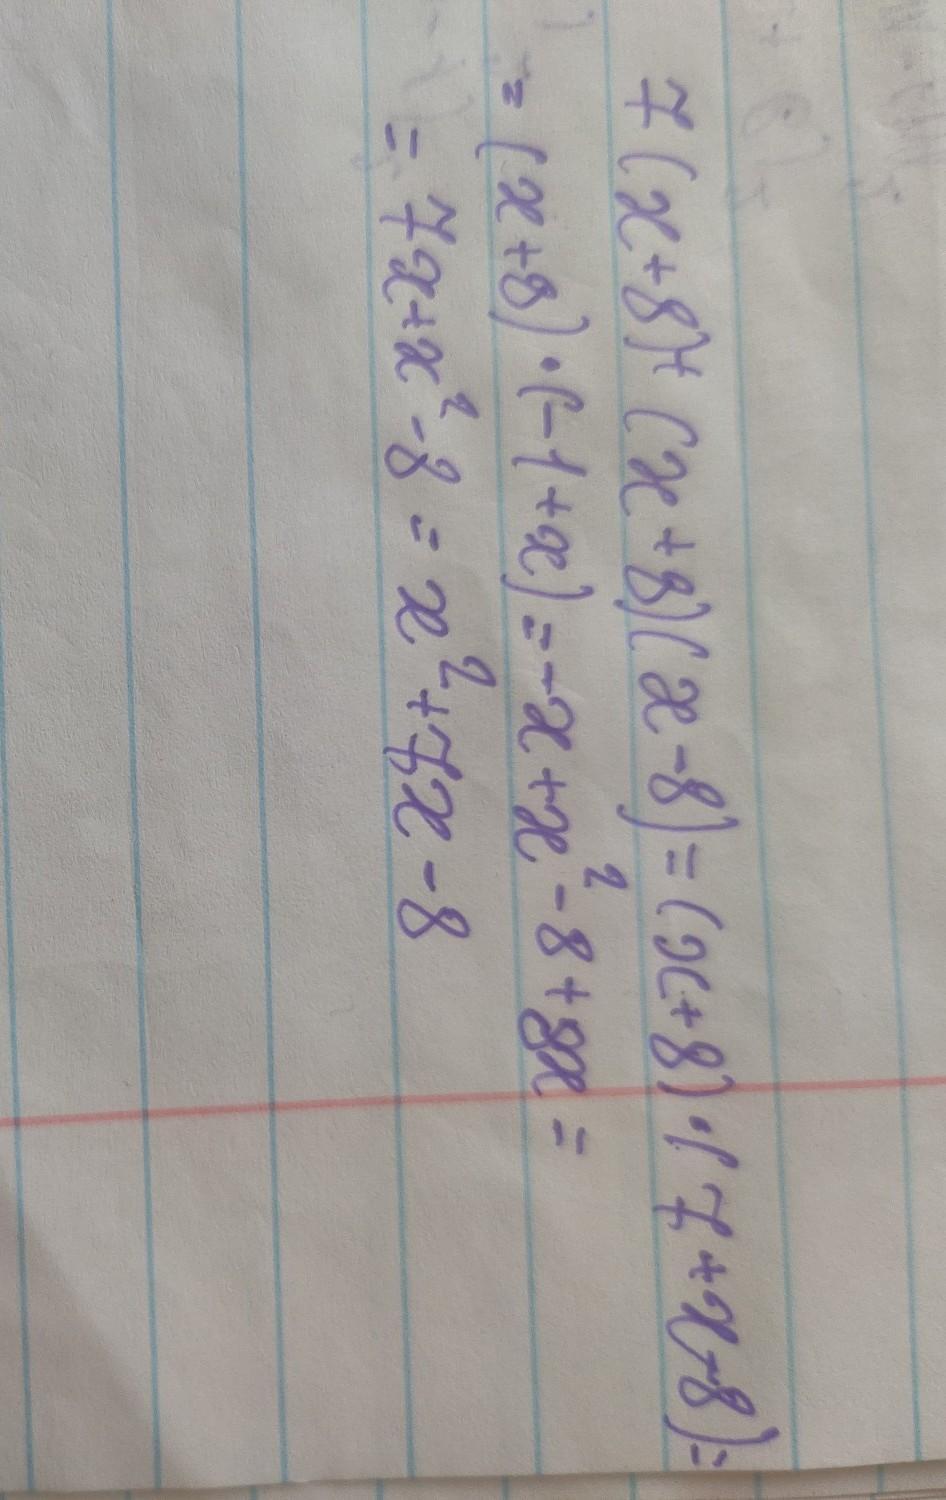 7(x+8)+(x+8)(x-8)=(x+8)·(7+x-8)=
=(x+8)·(-1+x)=-x+x²-8+8x=
=7x+x²-8=x²+7x-8